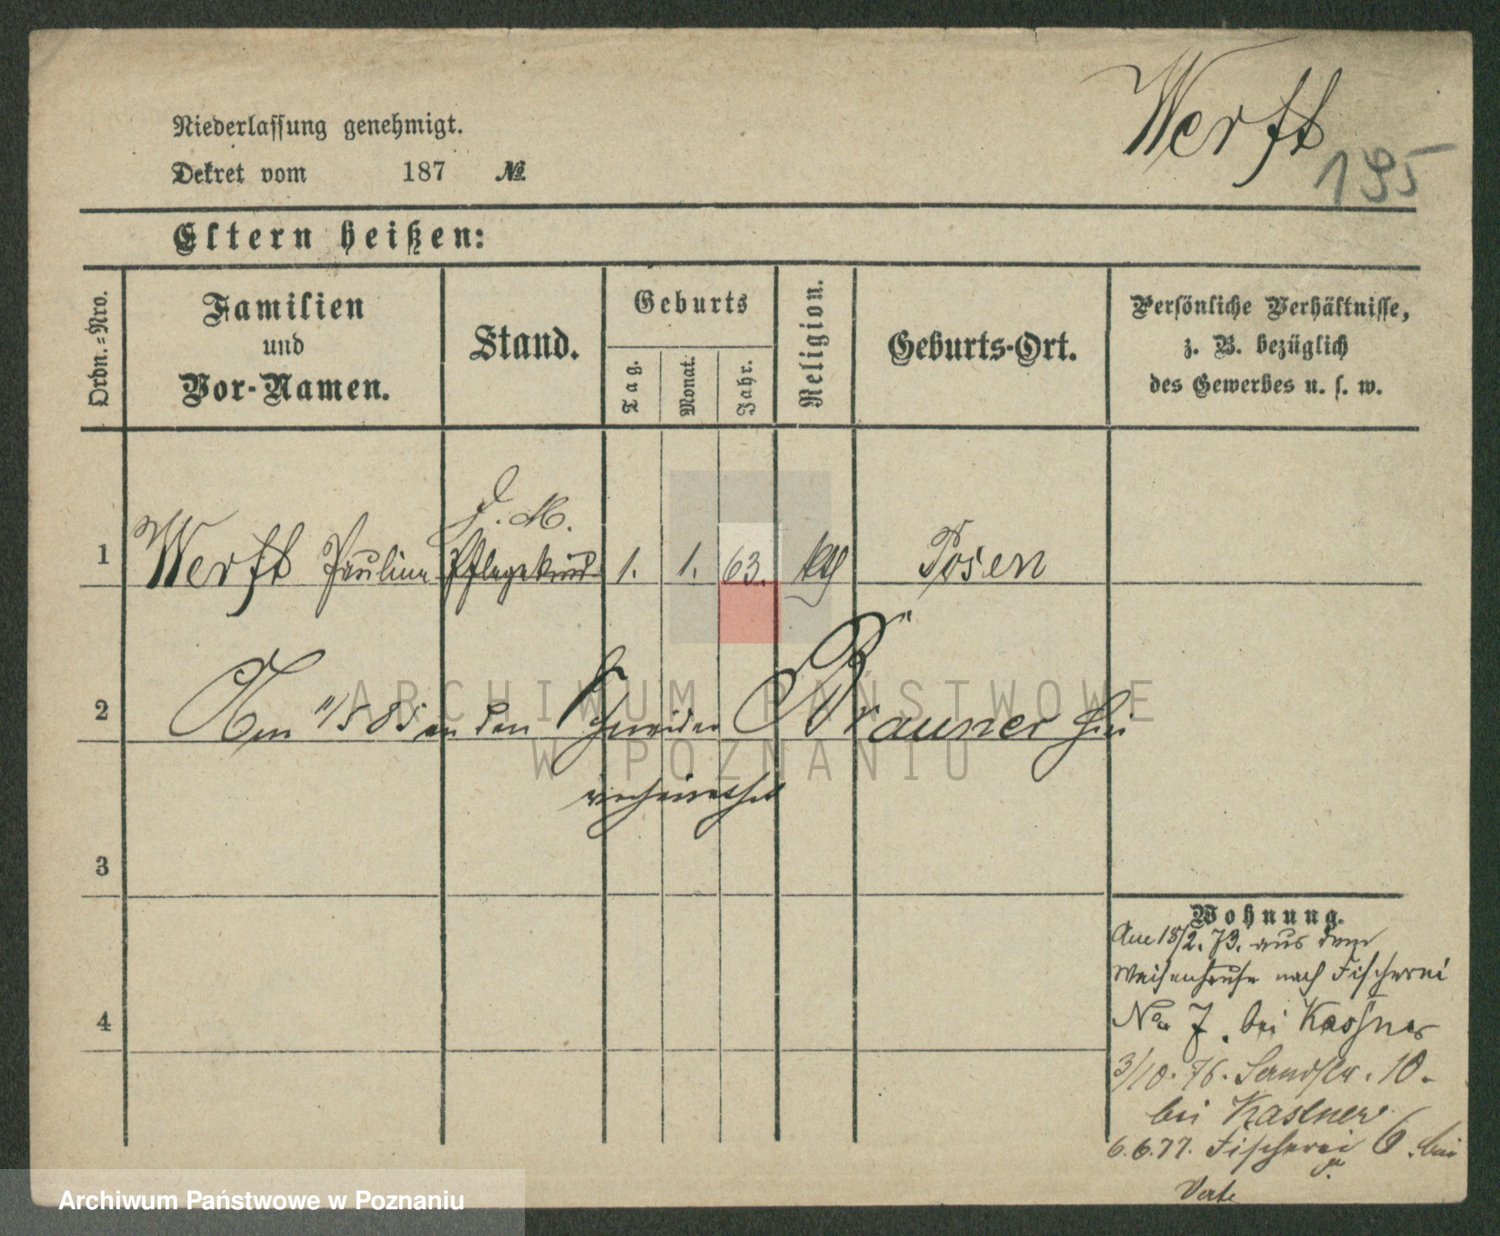 Werft
195
Niederlassung genehmigt.
Dekret vom 187 №
Eltern heißen:
Ordn.=Nro.
Familien
und
Vor-Namen.
Stand.
Geburts
Tag.
Monat.
Jahr.
Religion.
Geburts-Ort.
Persönliche Verhältnisse,
z. B. bezüglich
des Gewerbes u. s. w.
D. M.
1 Werft Pauline Pflegekind 1. 1. 63. kth Posen
2 Am 11/5 85 an den Schneider Brauner hier
verheirathet
3
4
Wohnung.
Am 18/2. 73. aus dem
Waisenhause nach Fischerei
No 7. bei Kastner
3/10. 76. Sandstr. 10.
bei Kastner
6.6.77. Fischerei 6. bei
Verte
ARCHIWUM PAŃSTWOWE
W POZNANIU
Archiwum Państwowe w Poznaniu